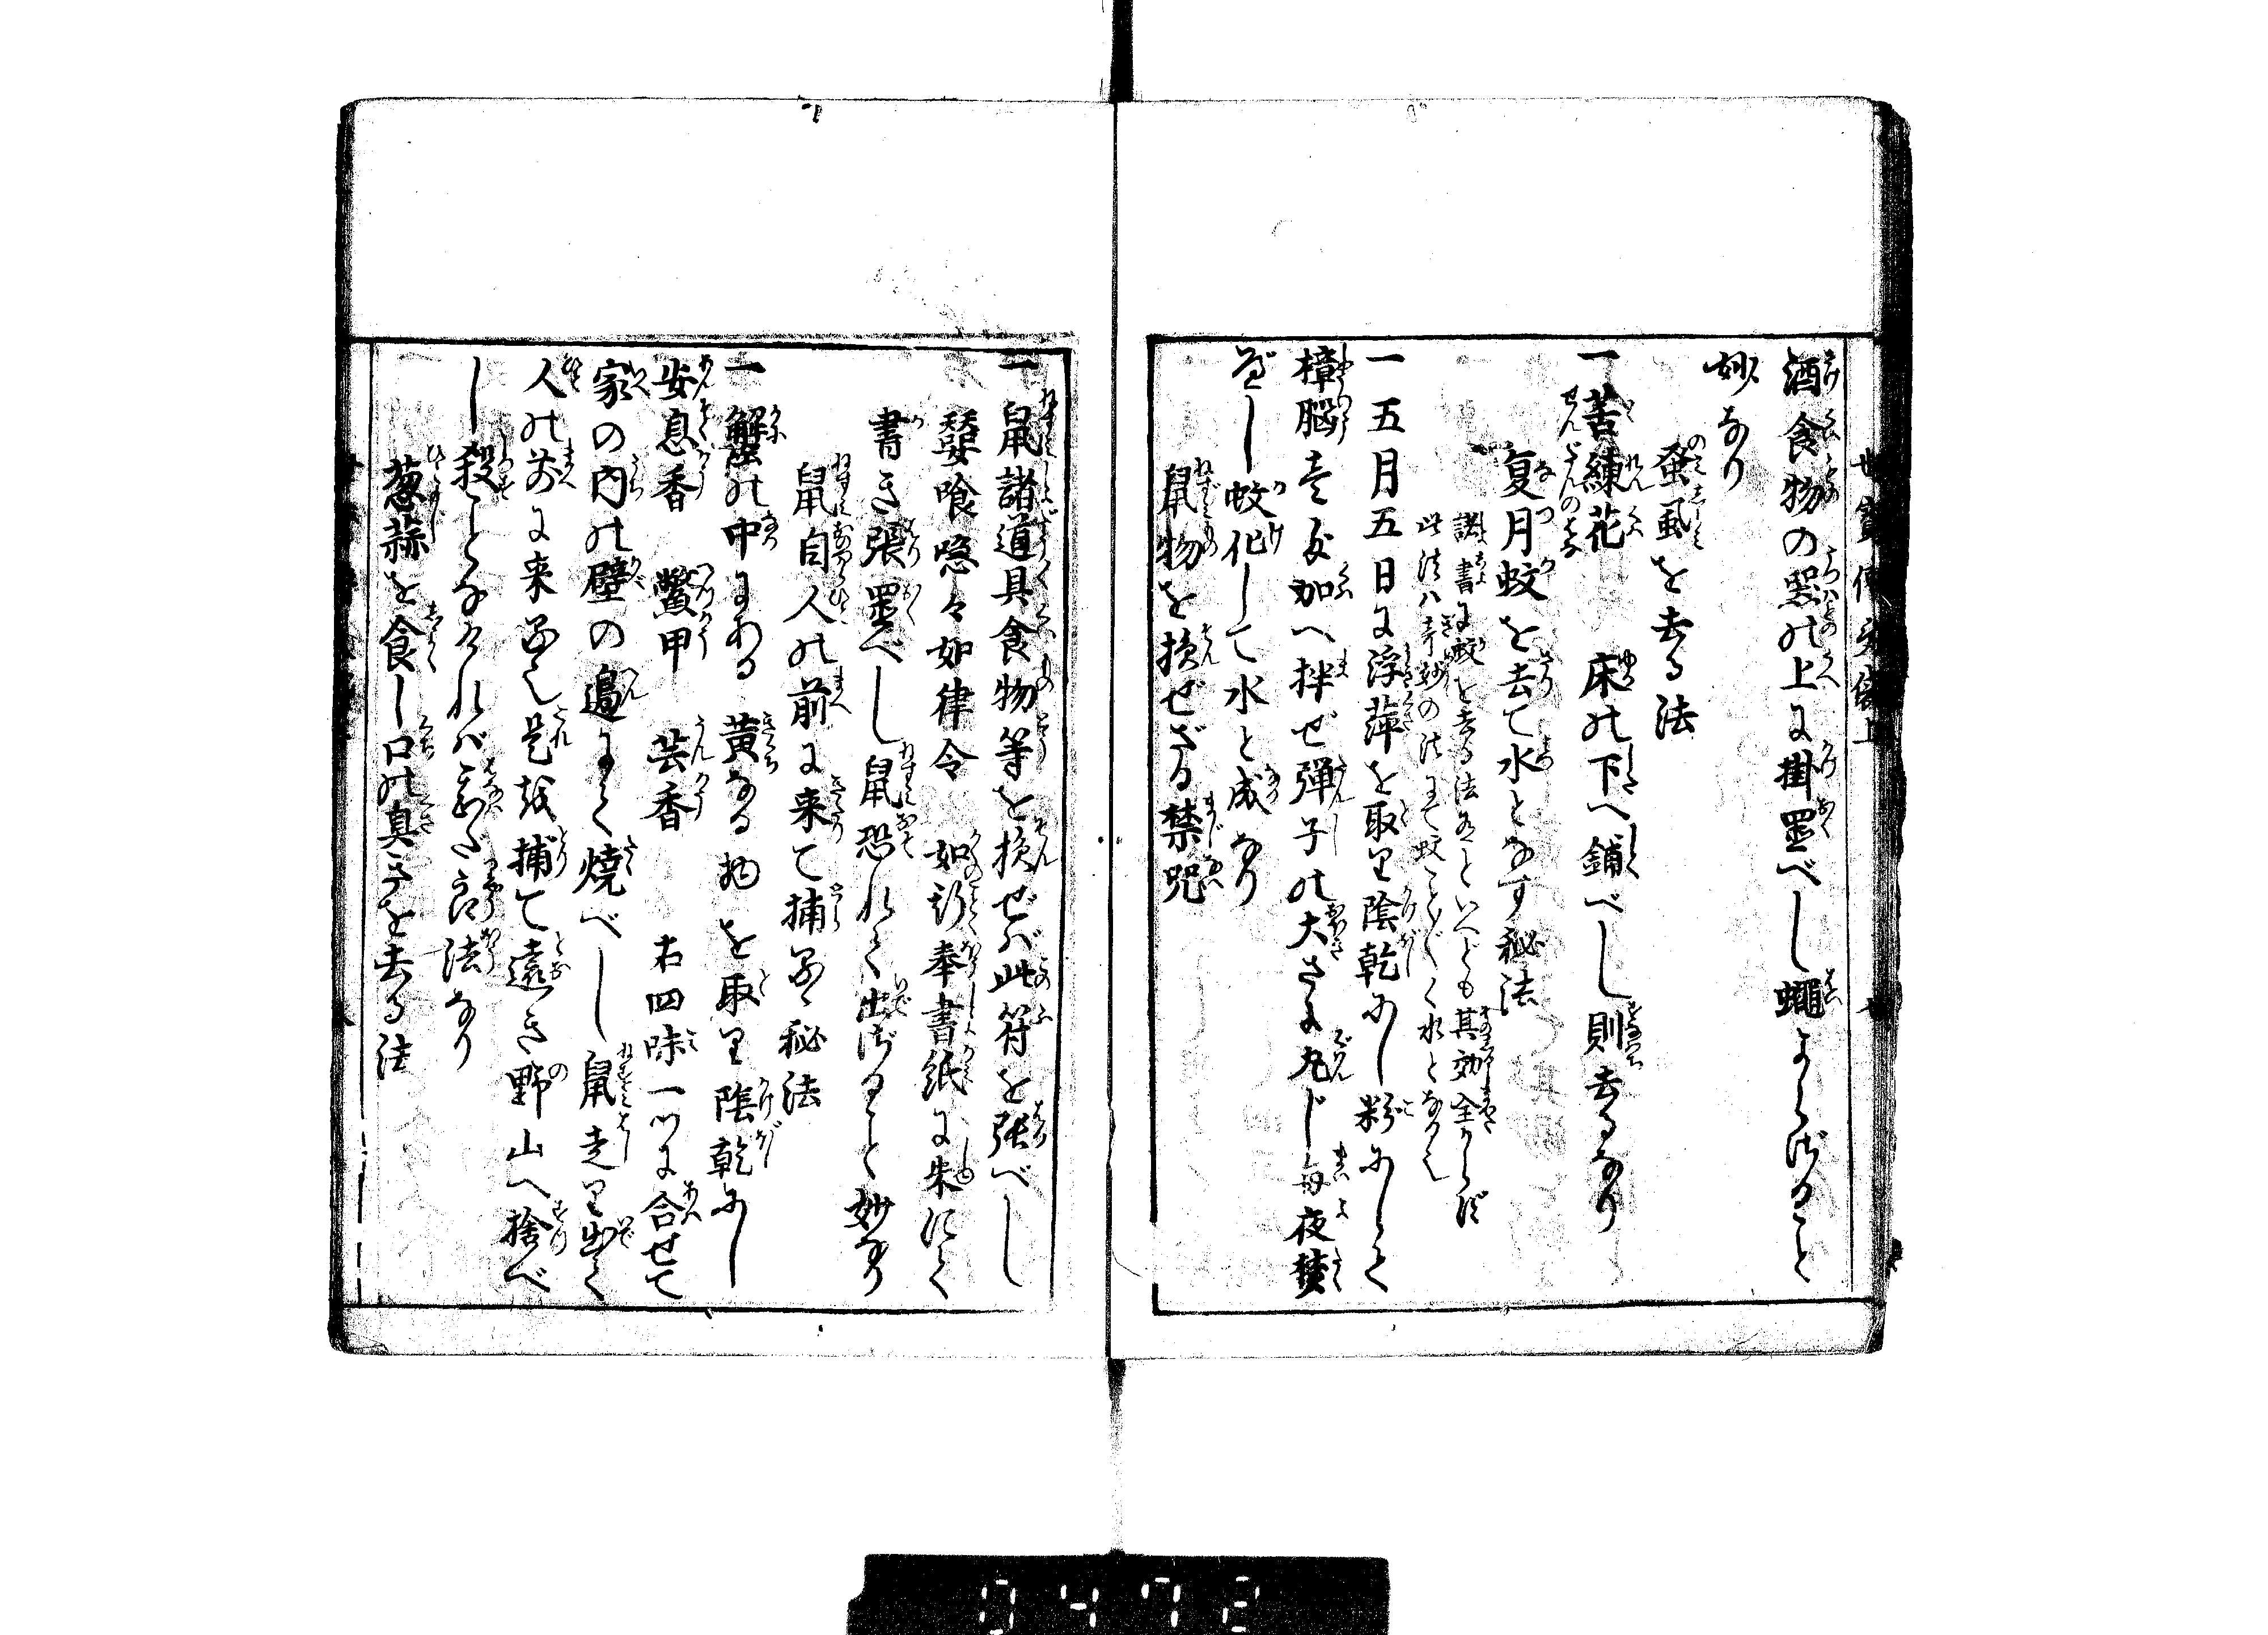 酒食物の器の上に掛置べし蠅よらざること
妙なり
蚤虱を去る法
一苦練花　床の下へ鋪べし則去るなり
せんだんのはな
夏月蚊を去て水となす秘法
諸書に蚊を去る法有といへども其効全からず
此法ハ奇妙の法にて蚊こと〴〵く水となる也
一五月五日に浮萍を取り陰乾にし粉にして
樟脳を加へ拌ぜ弾子の大さに丸じ毎夜焚
べし蚊化して水と成なり
鼠物を損ぜざる禁呪
一鼠諸道具食物等を損ぜバ此符を張べし
喰急々如律令　如斯奉書紙に朱にて
書き張置べし鼠恐れて出ざること妙なり
鼠自人の前に来て捕る秘法
一蟹の中にある黄なる物を取り陰乾にし
安息香　鱉甲　芸香　右四味一ツに合せて
家の内の壁の邉にて焼べし鼠走り出て
人の前に来る也是を捕て遠き野山へ捨べ
し殺ことなかれバ法なり
葱蒜を食し口の臭きを去る法
0472